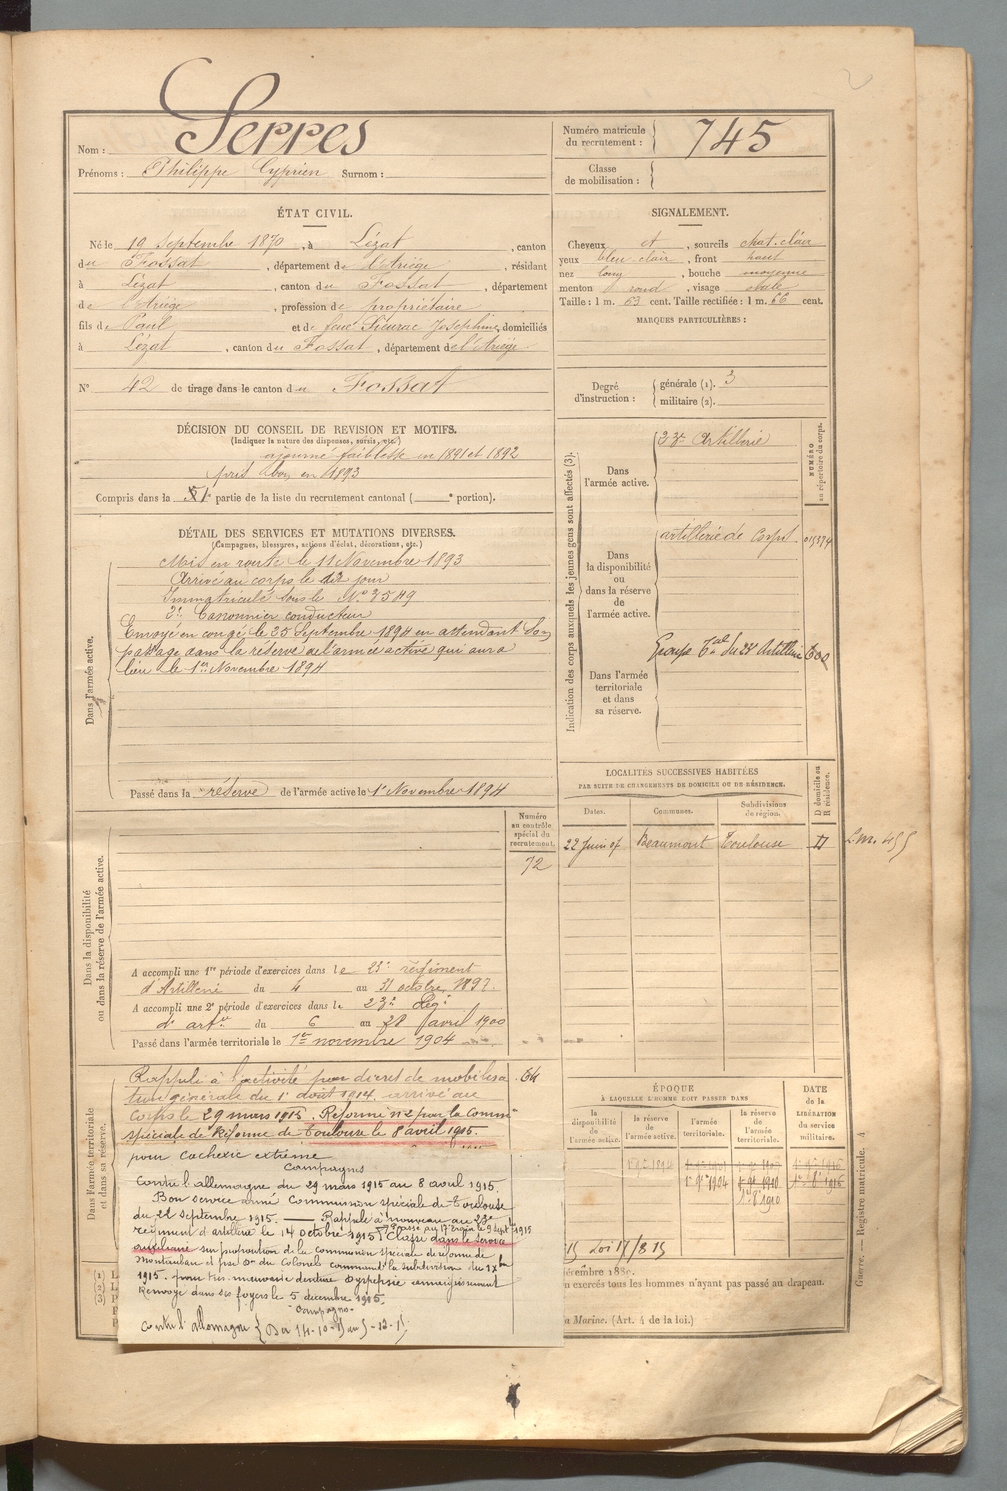 Nom : Serres
Prénoms : Philippe Cyprien Surnom :
Numéro matricule du recrutement : 745
Classe de mobilisation :
ÉTAT CIVIL.
Né le 19 Septembre 1870, à Lézat, canton
du Fossat, département de l'Ariège, résidant
à Lézat, canton du Fossat, département
de l'Ariège, profession de propriétaire
fils de Paul et de feue Sieurac Joséphine, domiciliés
à Lézat, canton du Fossat, département de l'Ariège
N° 42 de tirage dans le canton du Fossat
SIGNALEMENT.
Cheveux et, sourcils chat. clair
yeux bleu-clair, front haut
nez long, bouche moyenne
menton rond, visage ovale
Taille : 1 m. 63 cent. Taille rectifiée : 1 m. 66 cent.
MARQUES PARTICULIÈRES :
Degré d'instruction : générale (1). 3
militaire (2).
DÉCISION DU CONSEIL DE REVISION ET MOTIFS.
(Indiquer la nature des dispenses, sursis, etc.)
ajourné faiblesse en 1891 et 1892
pris bon en 1893
Compris dans la partie de la liste du recrutement cantonal ( e portion).
DÉTAIL DES SERVICES ET MUTATIONS DIVERSES.
(Campagnes, blessures, actions d'éclat, décorations, etc.)
Dans l'armée active.
Mis en route le 11 Novembre 1893
Arrivé au corps le dit jour
Immatriculé sous le N° 3549
2e Canonnier conducteur
Envoyé en congé le 25 Septembre 1894 en attendant son
passage dans la réserve de l'armée active qui aura
lieu le 1er Novembre 1894
Passé dans la réserve de l'armée active le 1er Novembre 1894
Indication des corps auxquels les jeunes gens sont affectés (3).
NUMÉRO au répertoire du corps.
Dans l'armée active.
23e Artillerie
Dans la disponibilité ou dans la réserve de l'armée active.
artillerie de Corps. 015374
Dans l'armée territoriale et dans sa réserve.
Groupe Tal du 23e Artillerie 600
LOCALITÉS SUCCESSIVES HABITÉES
PAR SUITE DE CHANGEMENTS DE DOMICILE OU DE RÉSIDENCE.
Dates. Communes. Subdivisions de région. D domicile ou R résidence.
22 Juin 07 Beaumont Toulouse D
Dans la disponibilité ou dans la réserve de l'armée active.
Numéro au contrôle spécial du recrutement.
72
A accompli une 1re période d'exercices dans le 23e régiment
d'Artillerie du 4 au 31 octobre 1897.
A accompli une 2e période d'exercices dans le 23e Régt
d'artie du 6 au
avril 1900
Passé dans l'armée territoriale le 1er novembre 1904
Dans l'armée territoriale et dans sa réserve.
Rappelé à l'activité par décret de mobilisa 64
tion générale du 1er août 1914 arrivé au
corps le 29 mars 1915. Réformé n°2 par la Common
spéciale de Réforme de Toulouse le 8 avril 1915.
pour cachexie extrême
Campagnes
Contre l'allemagne du 29 mars 1915 au 8 avril 1915.
Bon service armé Commission spéciale de Toulouse
du 21 septembre 1915. — Rappelé à nouveau au 23e
régiment d'artillerie le 14 octobre 1915. Classé dans le service
auxiliaire sur proposition de la commission spéciale de réforme de
Montauban
1915. pour très mauvaise denture dyspepsie amaigrissement
Renvoyé dans ses foyers le 5 décembre 1915.
Campagne
Contre l'allemagne { Du 14-10-15 au 5-12-15
ÉPOQUE
À LAQUELLE L'HOMME DOIT PASSER DANS
la disponibilité de l'armée active.
la réserve de l'armée active.
l'armée territoriale.
la réserve de l'armée territoriale.
DATE de la LIBÉRATION du service militaire.
1er 9bre 1904
Loi 17/8 15
n exercés tous les hommes n'ayant pas passé au drapeau.
a Marine. (Art. 4 de la loi.)
Guerre. — Registre matricule. 4